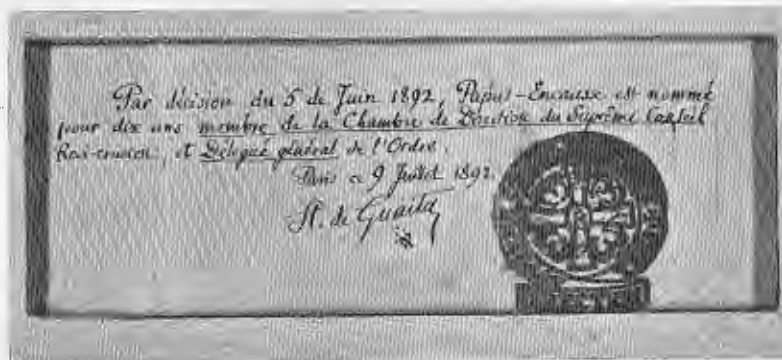 Par décision du 5 de Juin 1892, Papus-Encausse est nommé
pour dix ans membre de la Chambre de Direction du Suprême Conseil
Rose-croix, et Délégué général de l'Ordre.
Paris ce 9 Juillet 1892.
St. de Guaita